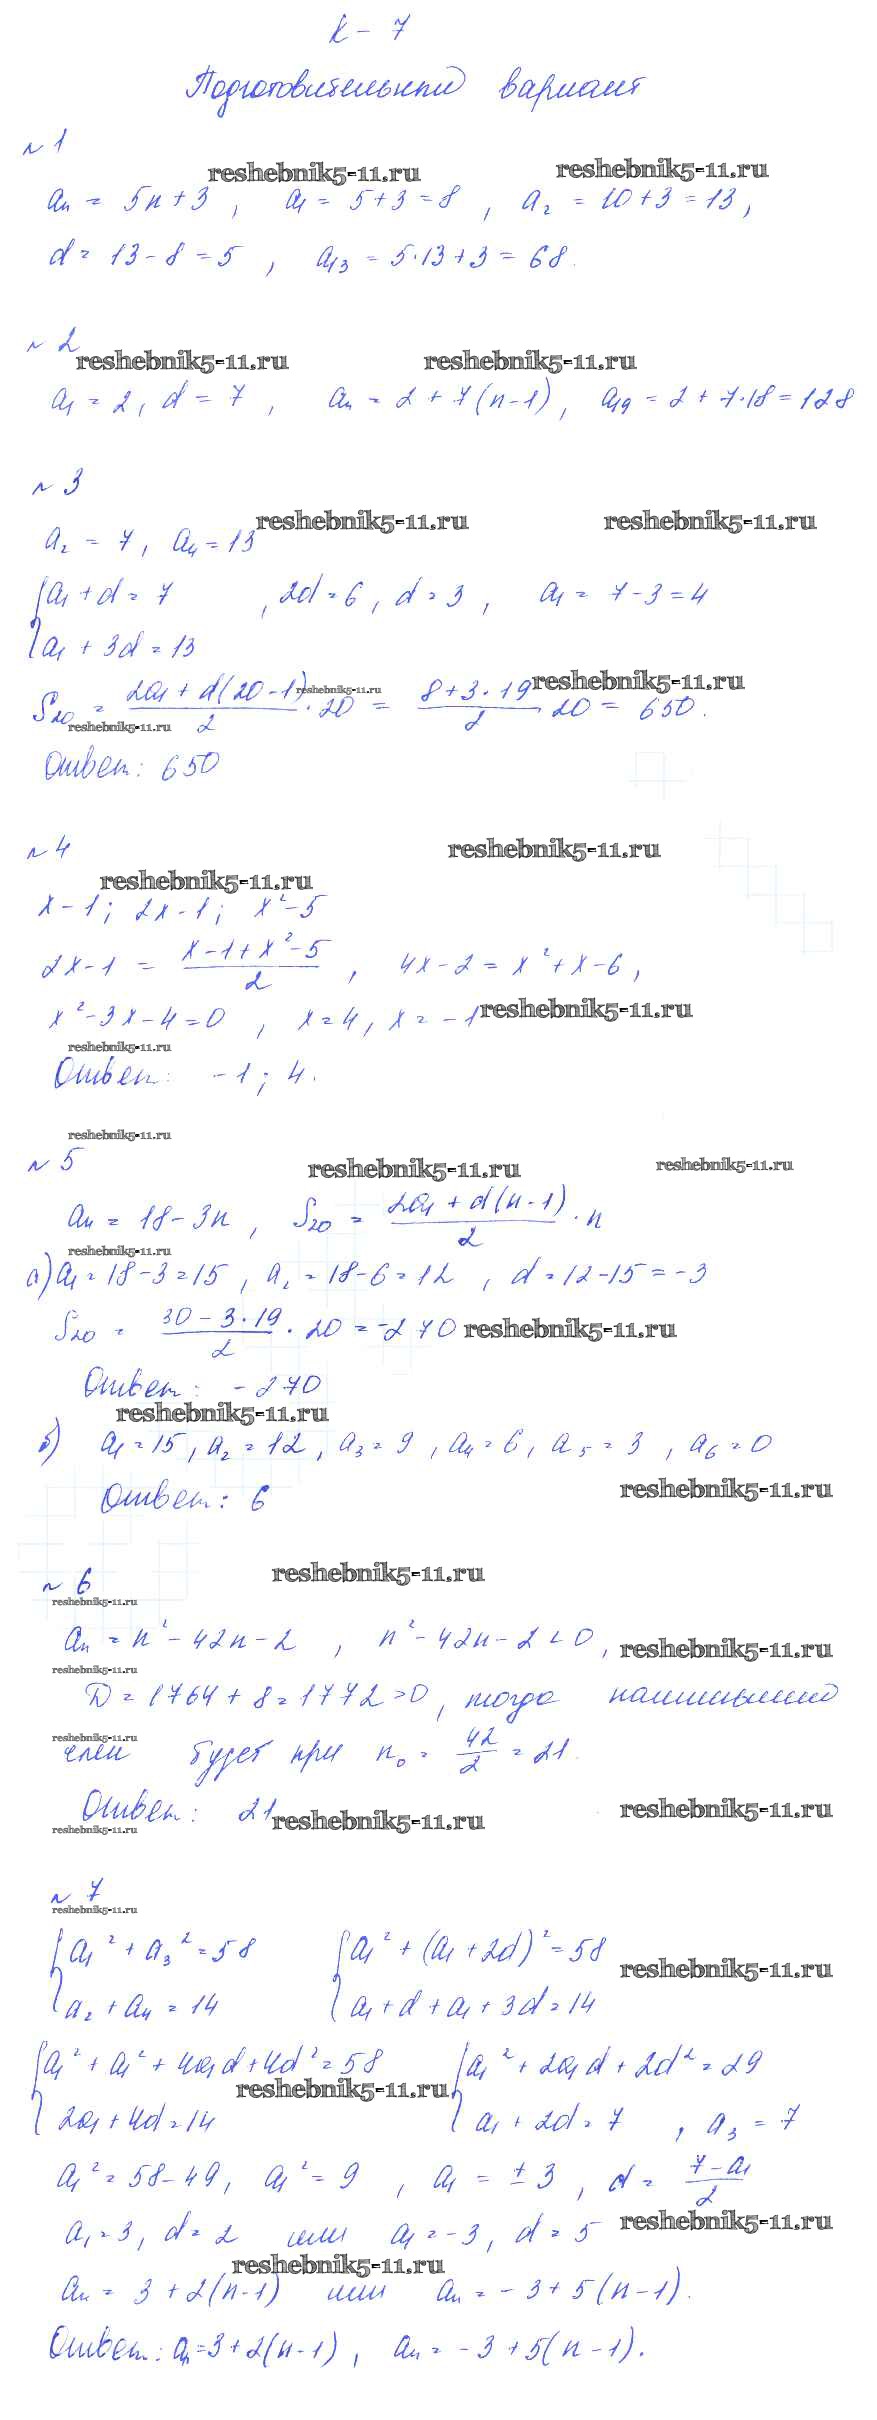 К - 7
Подготовительный вариант
№ 1
reshebnik5-11.ru reshebnik5-11.ru
aₙ = 5n + 3 , a₁ = 5 + 3 = 8 , a₂ = 10 + 3 = 13 ,
d = 13 - 8 = 5 , a₁₃ = 5·13 + 3 = 68.
№ 2
reshebnik5-11.ru reshebnik5-11.ru
a₁ = 2 , d = 7 , aₙ = 2 + 7(n-1) , a₁₉ = 2 + 7·18 = 128
№ 3
reshebnik5-11.ru reshebnik5-11.ru
a₂ = 7 , a₄ = 13
{ a₁ + d = 7 , 2d = 6 , d = 3 , a₁ = 7 - 3 = 4
a₁ + 3d = 13
reshebnik5-11.ru reshebnik5-11.ru
S₂₀ = (2a₁ + d(20-1))/2 · 20 = (8 + 3·19)/2 · 20 = 650.
reshebnik5-11.ru
Ответ: 650
№ 4
reshebnik5-11.ru
reshebnik5-11.ru
x - 1 ; 2x - 1 ; x² - 5
2x - 1 = (x - 1 + x² - 5)/2 , 4x - 2 = x² + x - 6 ,
x² - 3x - 4 = 0 , x = 4 , x = -1 reshebnik5-11.ru
reshebnik5-11.ru
Ответ: -1 ; 4.
reshebnik5-11.ru
№ 5
reshebnik5-11.ru reshebnik5-11.ru
aₙ = 18 - 3n , S₂₀ = (2a₁ + d(n-1))/2 · n
reshebnik5-11.ru
а) a₁ = 18 - 3 = 15 , a₂ = 18 - 6 = 12 , d = 12 - 15 = -3
S₂₀ = (30 - 3·19)/2 · 20 = -270 reshebnik5-11.ru
Ответ: -270
reshebnik5-11.ru
б) a₁ = 15 , a₂ = 12 , a₃ = 9 , a₄ = 6 , a₅ = 3 , a₆ = 0
Ответ: 6 reshebnik5-11.ru
reshebnik5-11.ru
№ 6
reshebnik5-11.ru
aₙ = n² - 42n - 2 , n² - 42n - 2 < 0 , reshebnik5-11.ru
reshebnik5-11.ru
D = 1764 + 8 = 1772 > 0 , тогда наименьший
reshebnik5-11.ru
член будет при n₀ = 42/2 = 21.
Ответ: 21 reshebnik5-11.ru reshebnik5-11.ru
reshebnik5-11.ru
№ 7
reshebnik5-11.ru
{ a₁² + a₃² = 58 { a₁² + (a₁ + 2d)² = 58
reshebnik5-11.ru
a₂ + a₄ = 14 a₁ + d + a₁ + 3d = 14
{ a₁² + a₁² + 4a₁d + 4d² = 58 { a₁² + 2a₁d + 2d² = 29
reshebnik5-11.ru
2a₁ + 4d = 14 a₁ + 2d = 7 , a₃ = 7
a₁² = 58 - 49 , a₁² = 9 , a₁ = ± 3 , d = (7 - a₁)/2
a₁ = 3 , d = 2 или a₁ = -3 , d = 5 reshebnik5-11.ru
reshebnik5-11.ru
aₙ = 3 + 2(n-1) или aₙ = -3 + 5(n-1).
Ответ: aₙ = 3 + 2(n-1) , aₙ = -3 + 5(n-1).